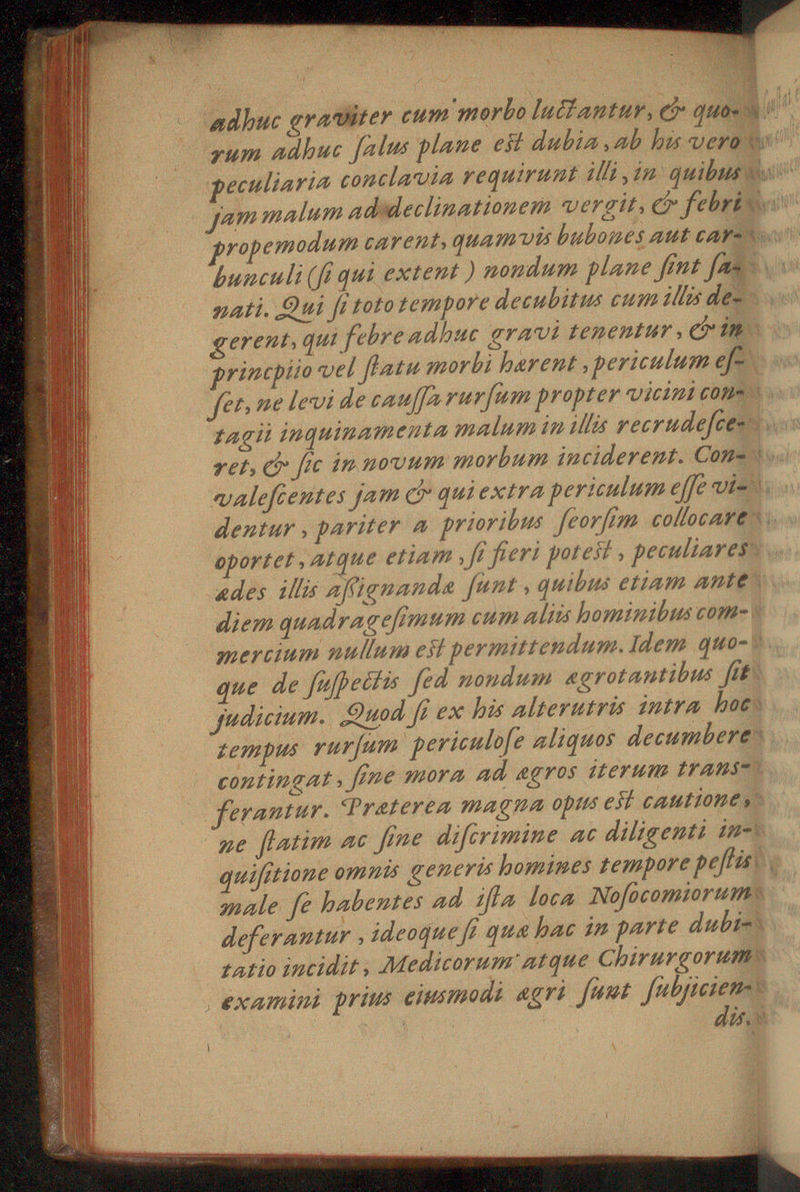 adhuc graviter cum morbo luctantur, & quo-
rum adhuc salus plane est dubia, ab his vero
peculiaria conclavia requirunt illi, in quibus
jam malum ad declinationem vergit, & febri
propemodum carent, quamvis bubones aut car-
bunculi (si qui extent) nondum plane sint sa-
nati. Qui si toto tempore decubitus cum illis de-
gerent, qui febre adhuc gravi tenentur, & in
princpiio vel statu morbi hærent, periculum es-
set, ne levi de caussa rursum propter vicini con-
tagii inquinamenta malum in illis recrudesce-
ret, & sic in novum morbum inciderent. Con-
valescentes jam & qui extra periculum esse vi-
dentur, pariter a prioribus seorsim collocare
oportet, atque etiam, si fieri potest, peculiares
ædes illis assignandæ sunt, quibus etiam ante
diem quadragesimum cum aliis hominibus com-
mercium nullum est permittendum. Idem quo-
que de suspectis sed nondum ægrotantibus sit
judicium. Quod si ex his alterutris intra hoc
tempus rursum periculose aliquos decumbere
contingat, sine mora ad ægros iterum trans-
ferantur. Præterea magna opus est cautione,
ne statim ac sine discrimine ac diligenti in-
quisitione omnis generis homines tempore pestis
male se habentes ad ista loca Nosocomiorum
deferantur, ideoque si qua hac in parte dubi-
tatio incidit, Medicorum atque Chirurgorum
examini prius eiusmodi ægri sunt subjicien-
dis.